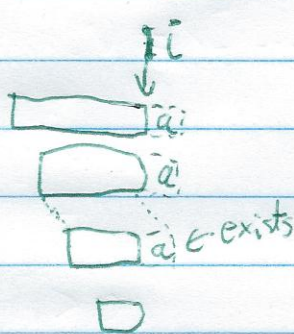 i
a
a
a ← exists